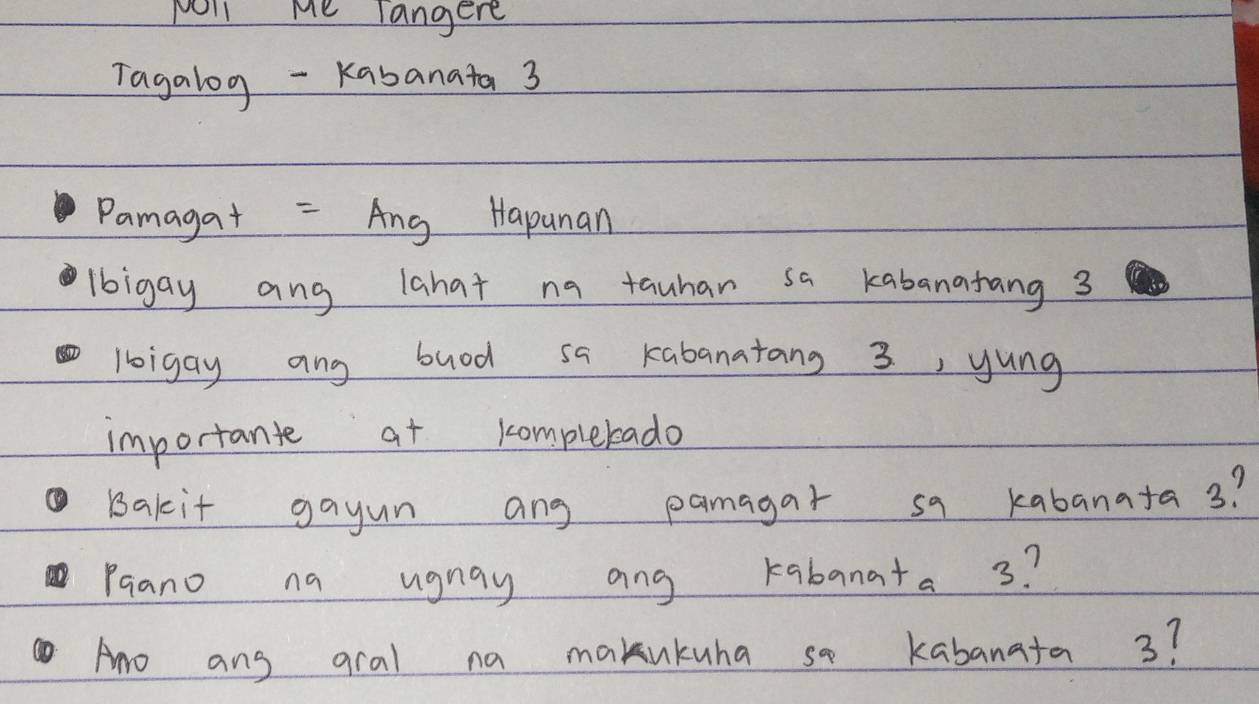 Noli Me Tangere
Tagalog - Kabanata 3
Pamagat = Ang Hapunan
Ibigay ang lahat na tauhan sa kabanatang 3
Ibigay ang buod sa kabanatang 3, yung
importante at komplekado
Bakit gayun ang pamagat sa kabanata 3?
Paano na ugnay ang kabanata 3?
Ano ang aral na makukuha sa kabanata 3?